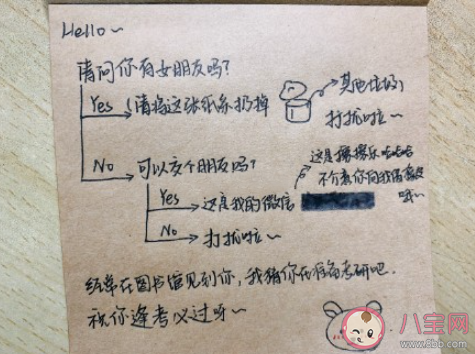 Hello~
请问你有女朋友吗?
Yes (请将这张纸条扔掉
其他位的
打扰啦~
No 可以交个朋友吗?
这是擦擦乐哈哈哈
不介意你向我借
哦~
Yes 这是我的微信
No 打扰啦~
经常在图书馆见到你,我猜你在准备考研吧.
祝你逢考必过呀~
八宝网
www.8bb.com